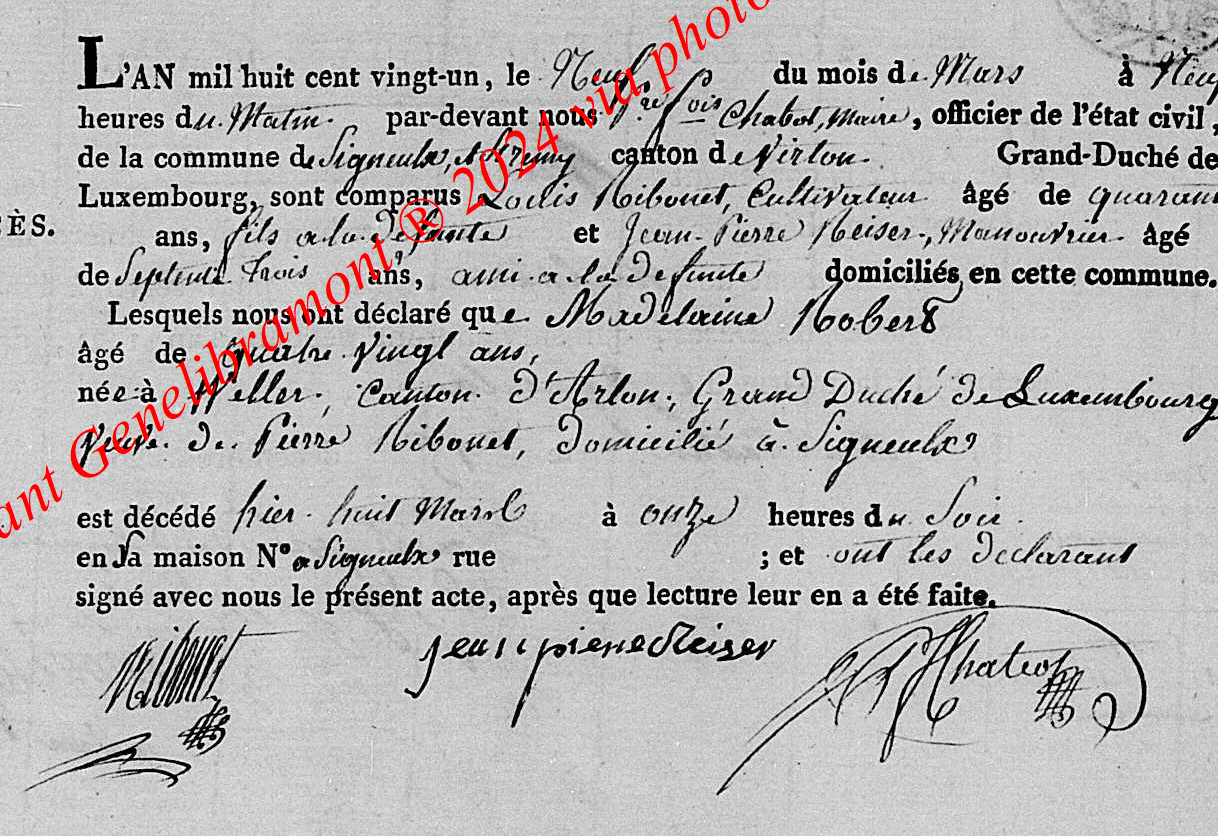 L'AN mil huit cent vingt-un, le Neuf du mois de Mars à Neuf
heures du Matin. par-devant nous P.re f.ois Chabot, Maire, officier de l'état civil,
de la commune de Signeulx, et canton de Virton. Grand-Duché de
Luxembourg, sont comparus Louis Ribonet, Cultivateur âgé de quarant
ÈS. ans, fils a la defunte et Jean-Pierre Reiser, Manouvrier âgé
de Septente trois ans, ami a la defunte domiciliés en cette commune.
Lesquels nous ont déclaré que Madelaine Robert
âgé de Quatre Vingt ans,
née à Weller, Canton d'Arlon, Grand Duché de Luxembourg
Veuve de Pierre Ribonet, domicilié à Signeulx
est décédé hier huit Mars à onze heures du Soir.
en Sa maison N° a Signeulx rue ; et ont les declarant
signé avec nous le présent acte, après que lecture leur en a été faite.
Ribonet jean pierre Reiser Chabot
ant Genelibramont ® 2024 via photo